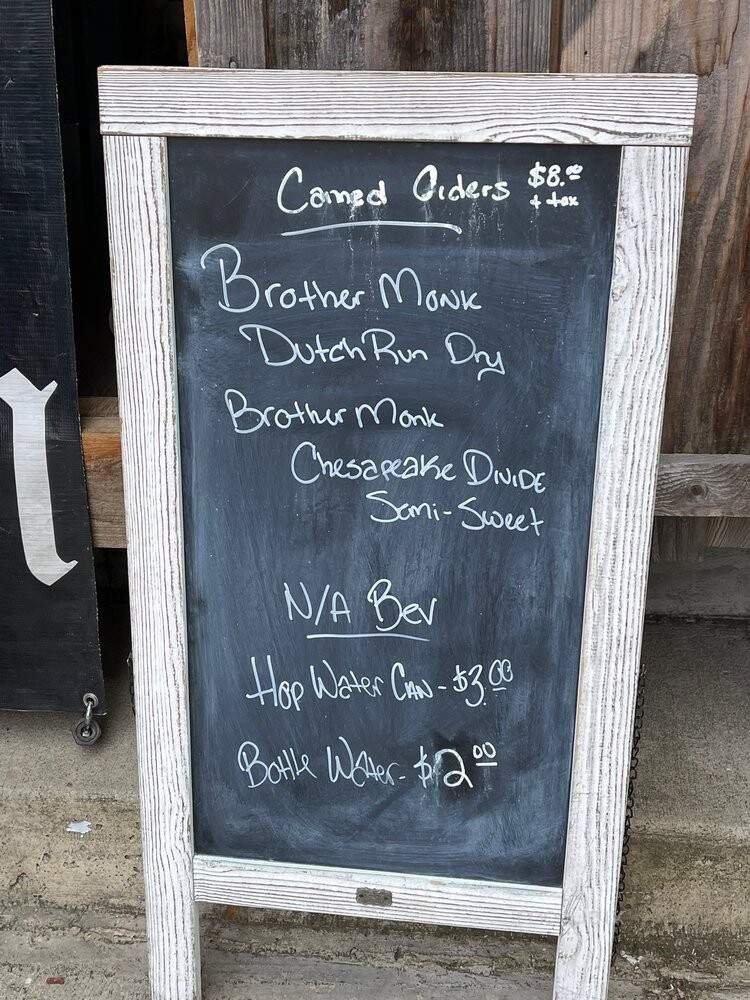 Canned Ciders $8.00
+ tax
Brother Monk
Dutch Run Dry
Brother Monk
Chesapeake Divide
Semi-Sweet
N/A Bev
Hop Water Can - $3.00
Bottle Water - $2.00